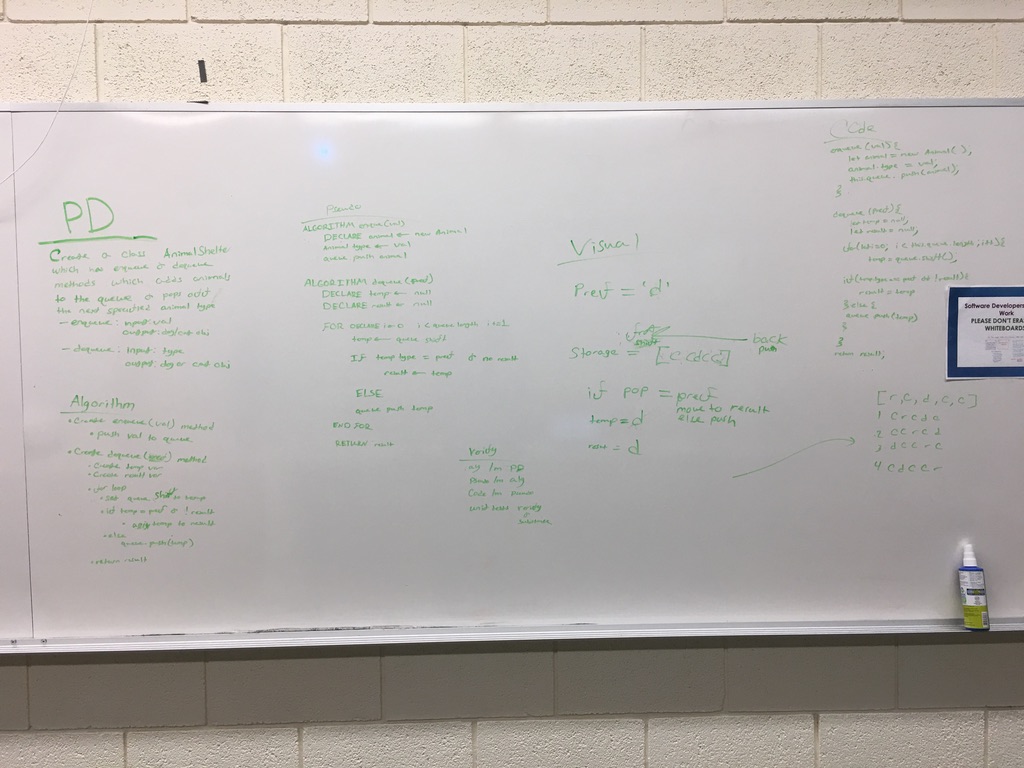 PD
Create a class AnimalShelter
which has enqueue & dequeue
methods which adds animals
to the queue & pops out
the next specified animal type
- enqueue: input: val
output: dog/cat obj
- dequeue: Input: type
output: dog or cat obj
Algorithm
• Create enqueue(val) method
• push val to queue
• Create dequeue(pref) method
• Create temp var
• Create result var
• for loop
• set queue shift to temp
• if temp = pref & ! result
• apply temp to result
• else
queue.push(temp)
• return result
Pseudo
ALGORITHM enqueue(val)
DECLARE animal ← new Animal
animal type ← val
queue push animal
ALGORITHM dequeue (pref)
DECLARE temp ← null
DECLARE result ← null
FOR DECLARE i = 0 i < queue length i++
temp ← queue shift
If temp type = pref & no result
result ← temp
ELSE
queue push temp
END FOR
RETURN result
Verify
alg from PD
Pseudo from alg
Code from pseudo
unit tests verify
Visual
Pref = 'd'
front
shift
back
push
Storage = [C, C d C C]
if pop = pref
move to result
else push
temp = d
result = d
Code
enqueue (val) {
let animal = new Animal( );
animal.type = val;
this.queue.push(animal);
}
dequeue (pref) {
let temp = null;
let result = null;
for(let i=0; i < this.queue.length; i++){
temp = queue.shift();
if(temp.type == pref && !result){
result = temp
} else {
queue.push(temp)
}
}
return result;
[r, c, d, c, c]
1 C r c d c
2 C C r c d
3 d C C r C
4 C d C C r
Software Developers
Work
PLEASE DON'T
WHITEBOARDS